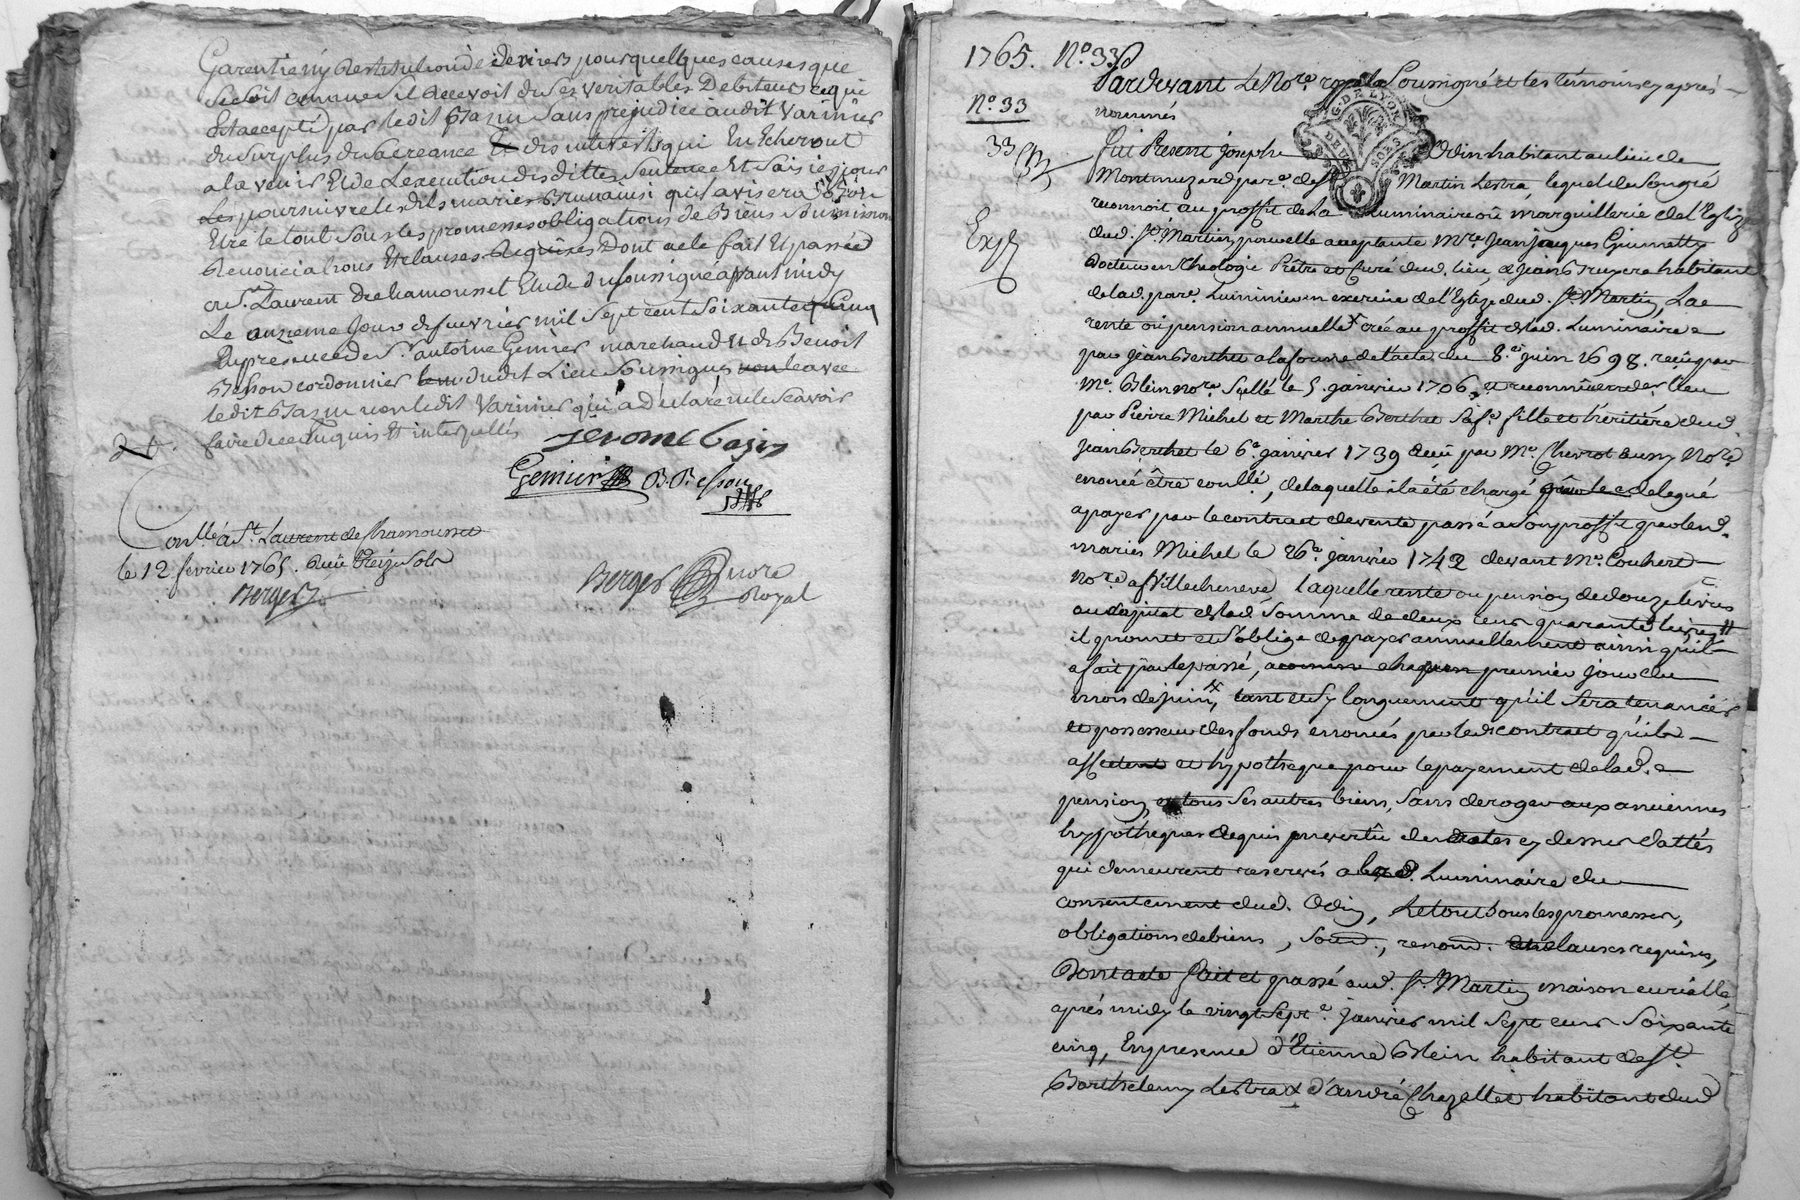 Garentie ny Restitution de deniers pour quelques causes que
ce soit comme s'il Recevoit du ses veritables Debiteurs ce qui
Est accepté par ledit Bazin Sans prejudice audit Varinier
du Surplus du Sa creance Et des interests qui En Echeront
a la venir Et de L'execution des dittes Sentence Et Saisies pour
Les poursuivre lesdits maries qu'il avisera
Etre le tout Sous les promesses obligations de Biens Soumissions
Renonciations Et clauses Requises Dont acte fait Et passé
a St Laurent de chamousset Etude du soussigné avant midy
Le onzeme Jour de fevrier mil Sept cent Soixante cinq
En presence de Sr antoine Genier marchand Et de Benoit
Besson cordonnier dudit Lieu Soussignes avec
ledit Bazin non ledit Varinier qui a Déclaré ne le Scavoir
faire de ce Enquis Et interpellés
Jerome bazin
Genier B. Besson
Conllé à St Laurent de Chamousset
le 12 fevrier 1765. Reçu treize sols
Berger
Berger nore
Royal
1765. No. 33
Pardevant Le Nore. royal Soussigné et les témoins cy aprés
No. 33
nommés
33
G. DE LYON
DEUX SOLS
fut Présent joseph Odin habitant au lieu de
Montmuzard pare. de St Martin Lestra, lequel de Son gré
reconnoit au proffit de la Luminaire où marguillerie de l'Eglize
dud. St. Martin, pour elle acceptante Mre. Jean jacques
Expé
Docteur en théologie Prêtre et Curé dud. lieu, & Jean Bruyere habitant
de lad. pare. Luminier en exercice de l'Eglize dud. St Martin, La
rente où pension annuelle x créé au proffit de lad. Luminaire
par jean Berthet a la forme de l'acte du 8e. juin 1698. reçu par
Me. Blein nore. Scellé le 5 janvier 1706, et reconnüe
par Pierre Michel et Marthe Berthet Sa fe. fille et héritière dud.
jean Berthet le 6e. janvier 1739 reçu par Me. Chevrot aussy Nore.
enoncé être conllé, de laquelle il a été chargé et delegué
a payer par le contract de vente passé a Son proffit par lesd.
mariés Michel le 26e. janvier 1742 devant Me. Couhert
Nore. a Villecheneve, laquelle rente ou pension de douze livres
au capital de lad. Somme de deux cens quarante livres
il promet et S'oblige de payer annuellement ainsi qu'il
a fait par le passé, a chaque premier jour du
mois de juin, x tant et Sy longuement qu'il Sera tenancier
et possesseur des fonds enoncés par led. contract qu'il
affecte et hypotheque pour le payement de lad.
pension, et tous Ses autres biens, Sans deroger aux anciennes
hypotheques acquis en vertû des actes cy dessus dattés
qui demeurent reservés a lad. Luminaire du
consentement dud. Odin, Le tout Sous les promesses,
obligations de biens, Soum., renon. et clauses requises,
Dont acte fait et passé aud. St. Martin maison curialle,
aprés midy le vingt Sept e. Janvier mil Sept cens Soixante
cinq, En presence d'Etienne Blein habitant de St.
Barthelemy Lestra & d'André Chazellet habitant dud